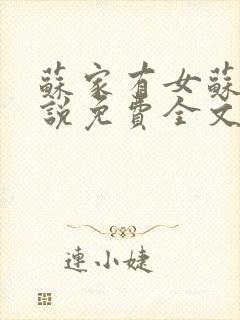 蘇家有女蘇
說免費全文
連小婕